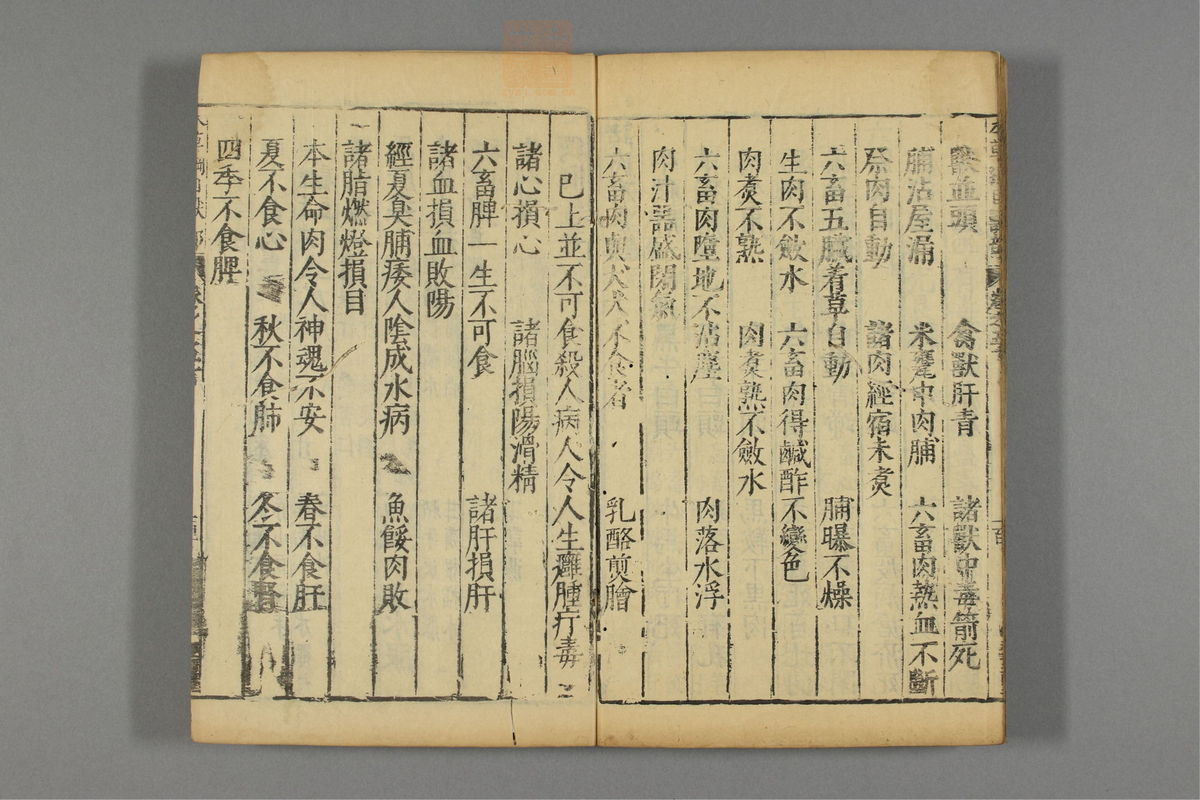 獸並頭　禽獸肝青　諸獸中毒箭死
脯沾屋漏　米甕中肉脯　六畜肉熱血不斷
祭肉自動　諸肉經宿未煑
六畜五臟着草自動　脯曝不燥
生肉不斂水　六畜肉得鹹酢不變色
肉煑不熟　肉煑熟不斂水
六畜肉墮地不沾塵　肉落水浮
肉汁器盛閉氣
六畜肉與犬犬不食者　乳酪煎膾
已上並不可食殺人病人令人生癰腫疔毒
諸心損心　諸腦損陽滑精
六畜脾一生不可食　諸肝損肝
諸血損血敗陽
經夏臭脯痿人陰成水病　魚餒肉敗
諸脂燃燈損目
本生命肉令人神魂不安　春不食肝
夏不食心　秋不食肺　冬不食腎
四季不食脾